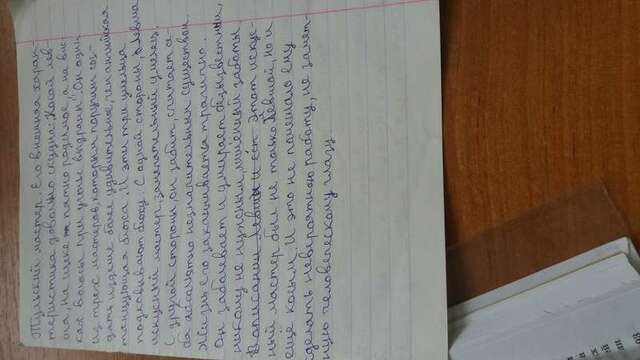 Тульский мастер. Его внешняя харак-
теристика довольно скудна: "Косой лев-
ша, на щеке пятно родимое, а на вис-
ках волосы при ученье выдраны". Он один
из трех мастеров, которым поручили соз-
дать изделие более удивительное, чем английская
танцующая блоха. И эти три умельца
подковывают блоху. С одной стороны, Левша
искусный мастер, замечательный умелец.
С другой стороны, он забит, считает се-
бя абсолютно незначительным существом.
Жизнь его заканчивается трагично...
Он заболевает и умирает безызвестным,
никому не нужным, лишённый заботы.
В описании Левши и ест Этот искус-
ный мастер был не только левшой, но и
ещё косым. И это не помешало ему
сделать невероятную работу, не замет-
ную человеческому глазу
а
в
х
ей
ан
03